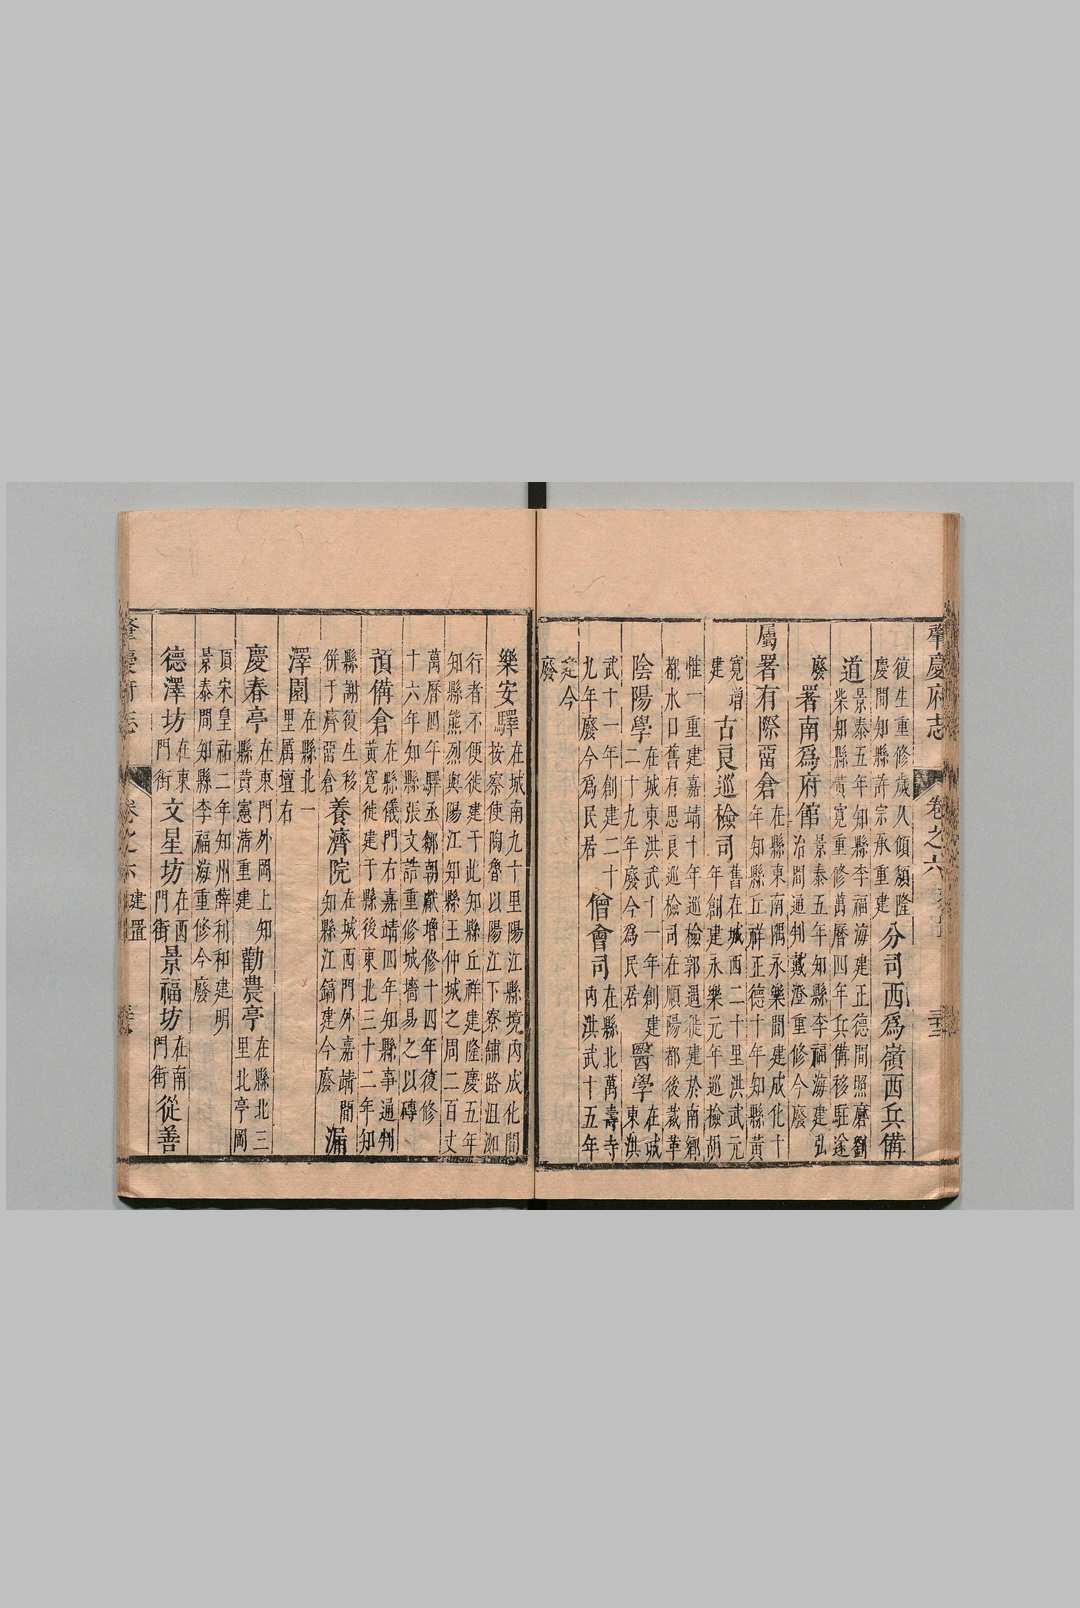 肇慶府志 卷之六
復生重修歲久傾頹隆
慶間知縣許宗承重建
分司西爲嶺西兵備
道
景泰五年知縣李福海建正德間照磨劉
柴知縣黃寬重修萬曆四年兵備移駐遂
廢
署南爲府館
景泰五年知縣李福海建弘
治間通判戴澄重修今廢
屬署有際留倉
在縣東南隅永樂間建成化十
年知縣丘祥正德十年知縣黃
寬增
建
古良巡檢司
舊在城西二十里洪武元
年創建永樂元年巡檢荊
惟一重建嘉靖十年巡檢郭遇徙建於南鄉
都水口舊有思良巡檢司在順陽都後裁革
陰陽學
在城東洪武十一年創建
二十九年廢今爲民居
醫學
在城
東洪
武十一年創建二十
九年廢今爲民居
僧會司
在縣北萬壽寺
内洪武十五年
建今
廢
樂安驛
在城南九十里陽江縣境内成化間
按察使陶魯以陽江下寮鋪路沮洳
行者不便徙建于此知縣丘祥建隆慶五年
知縣熊烈與陽江知縣王仲城之周二百丈
萬曆四年驛丞鄒朝獻增修十四年復修
十六年知縣張文誥重修城墻易之以磚
預備倉
在縣儀門右嘉靖四年知縣事通判
黃寬徙建于縣後東北三十二年知
縣謝復生移
併于濟留倉
養濟院
在城西門外嘉靖間
知縣江鎬建今廢
漏
澤園
在縣北一
里厲壇右
慶春亭
在東門外岡上知
縣黃憲清重建
勸農亭
在縣北三
里北亭岡
頂宋皇祐二年知州薛利和建明
景泰間知縣李福海重修今廢
德澤坊
在東
門街
文星坊
在西
門街
景福坊
在南
門街
從善
肇慶府志 卷之六 建置